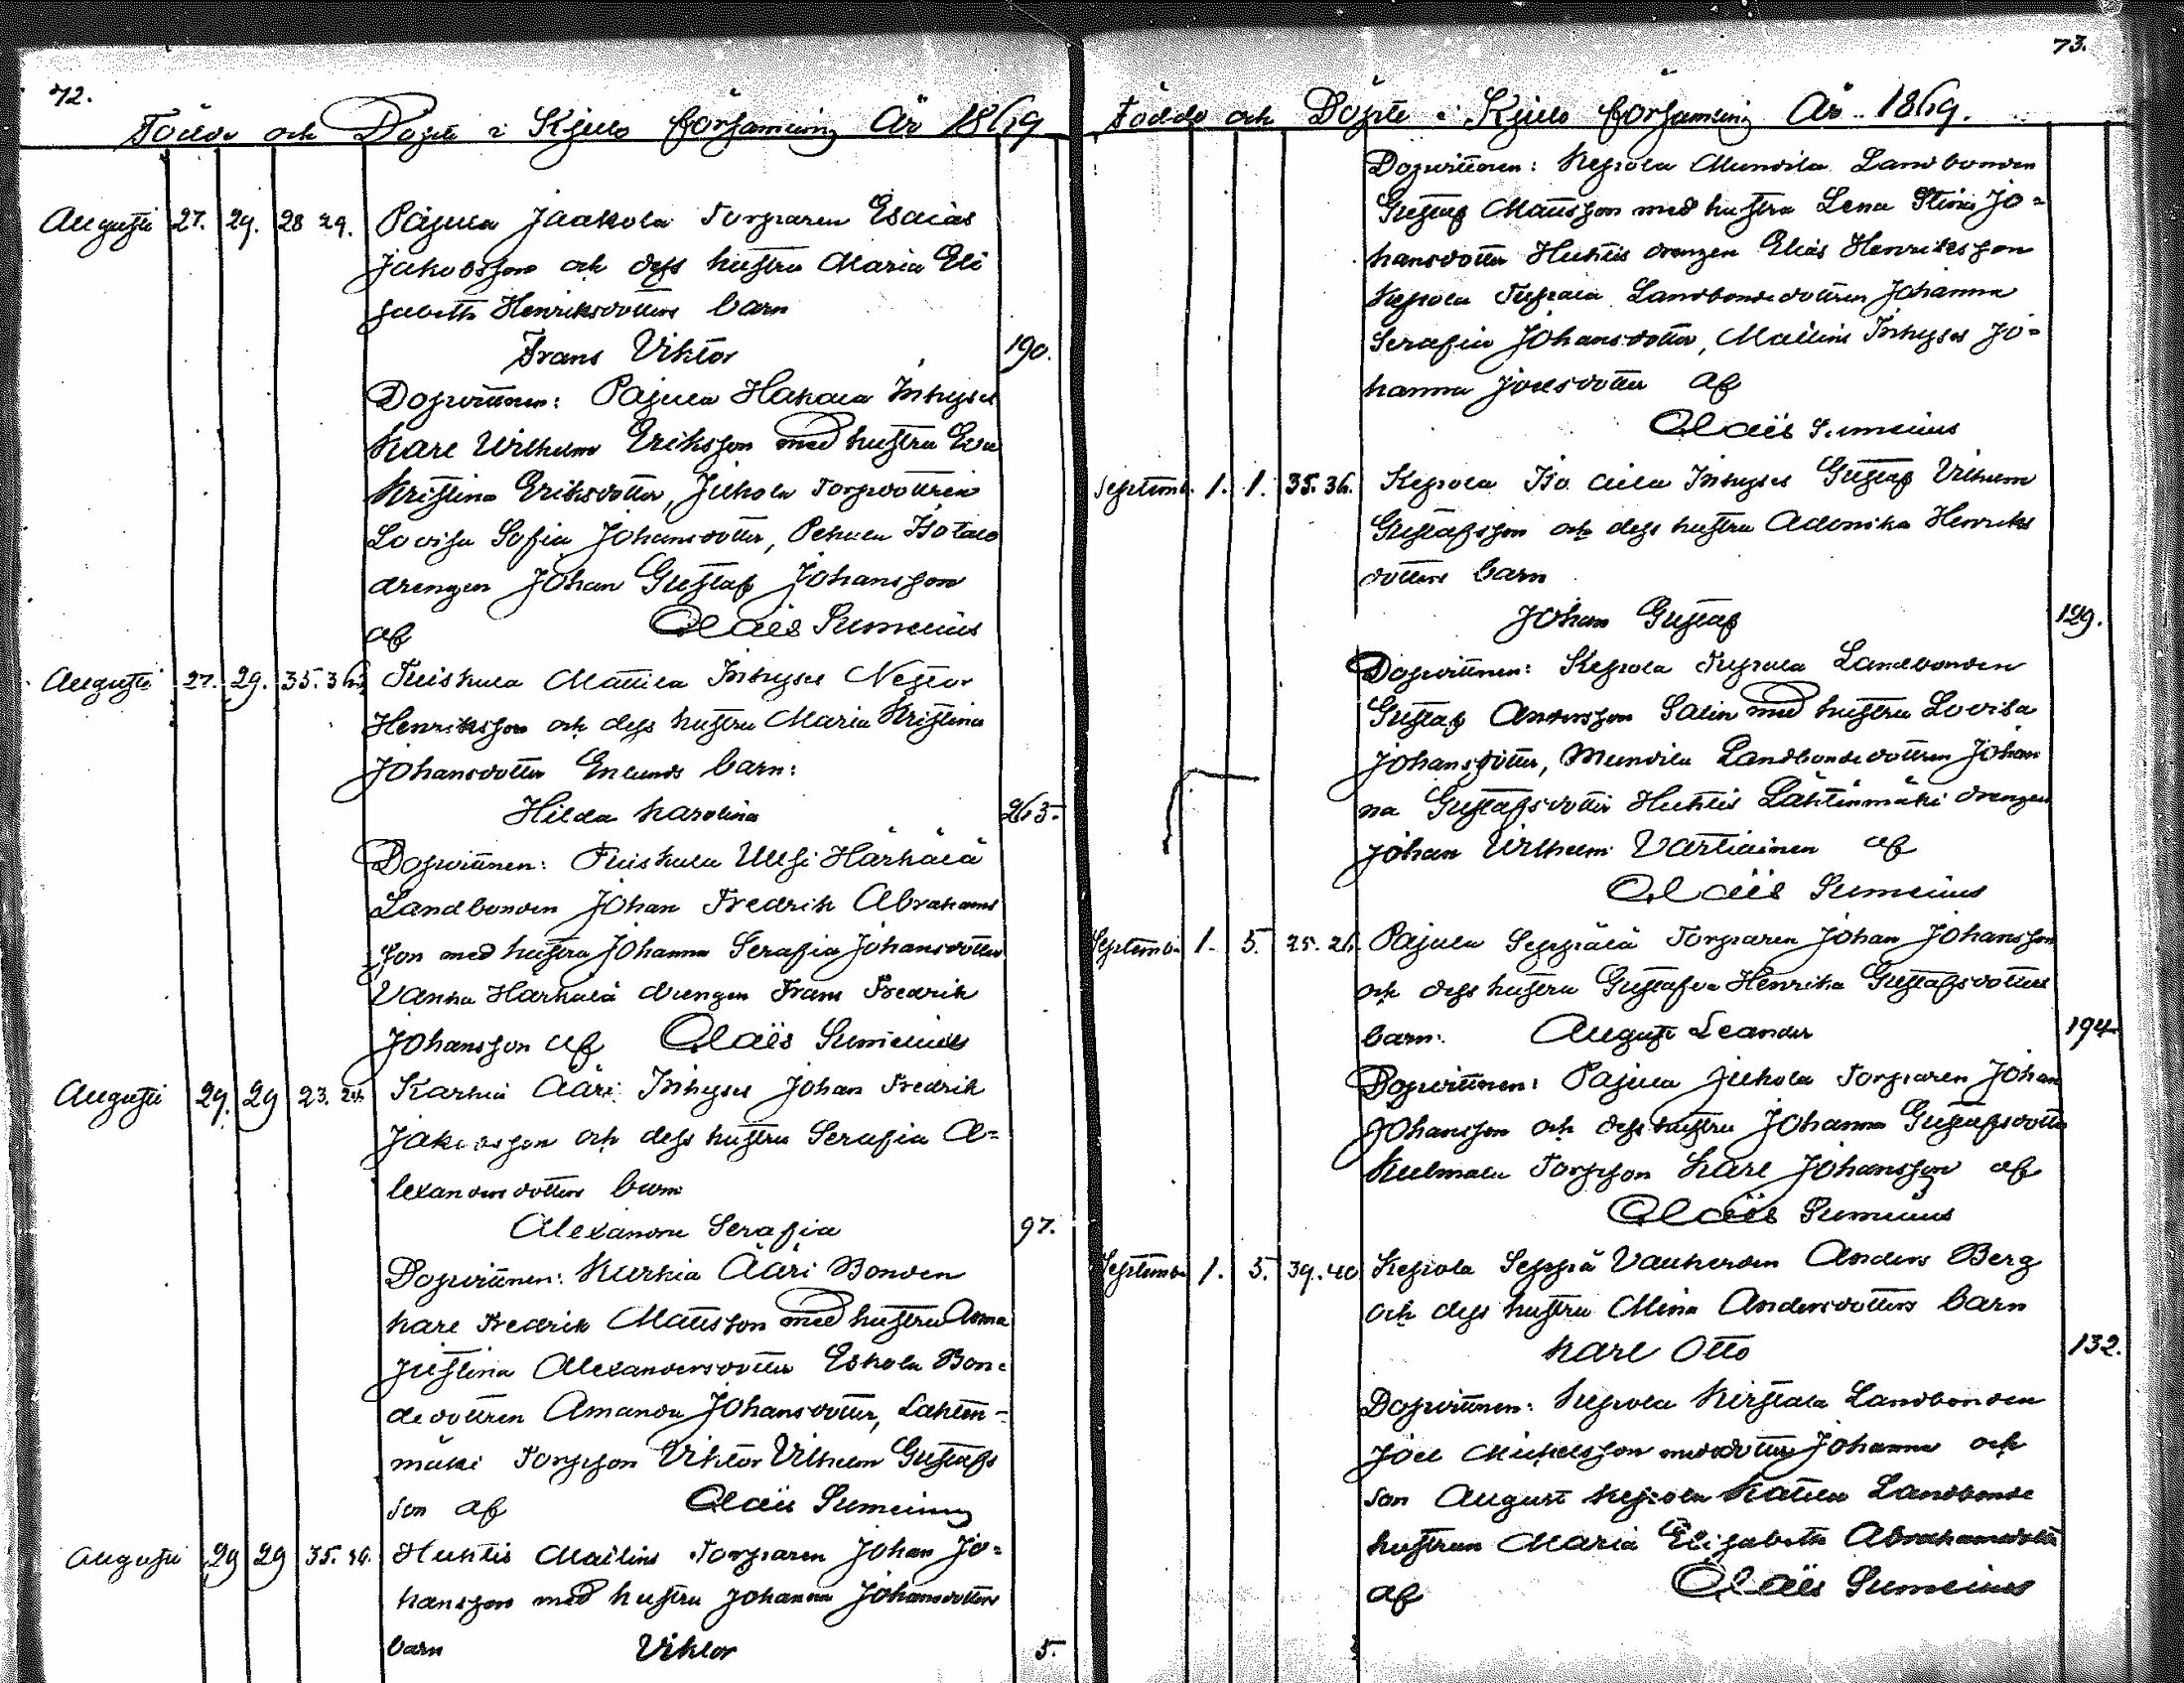 72.
Födde och Döpte i Kjulo församling År 1869
Augusti 27. 29. 28 29. Pajula Jaakola Torparen Esaias
Jakobsson och dess hustru Maria Eli
sabeth Henriksdotters barn
Frans Viktor 190.
Dopvittnen: Pajula Hakala Inhyses
Karl Wilhelm Eriksson med hustru Eva
Kristina Eriksdotter, Juhola Torpdottren
Lovisa Sofia Johansdotter, Isotalo
drengen Johan Gustaf Johansson
af Claës Sumelius
Augusti 27. 29. 35. 36. Tuiskula Mattila Inhyses Nestor
Henriksson och dess hustru Maria Kristina
Johansdotter Enlunds barn:
Hilda Karolina 263.
Dopvittnen: Tuiskula Uusi Härkälä
Landbonden Johan Fredrik Abrahams
son med hustru Johanna Serafia Johansdotter
Vanha Härkälä drengen Frans Fredrik
Johansson af Claës Sumelius
Augusti 29. 29 23. 24. Karhia Ääri Inhyses Johan Fredrik
Jakobsson och dess hustru Serafia A=
lexandersdotters barn
Alexandra Serafia 97.
Dopvittnen: Karhia Ääri Bonden
Karl Fredrik Mattsson med hustru Anna
Justina Alexandersdotter Eskola Bon=
dedottren Amanda Johansdotter, Lähteen-
mäki Torpson Viktor Vilhelm Gustafs
son af Claës Sumelius
Augusti 29 29 35. 36. Huhtis Mailins Torparen Johan Jo=
hansson med hustru Johanna Johansdotters
barn Viktor 5.
73.
Födde och Döpte i Kjulo församling År 1869.
Dopvittnen: Kepola Mundila Landbonden
Gustaf Mattsson med hustru Lena Stina Jo=
hansdotter Huhtis drengen Elias Henriksson
Kepola Landbondedottren Johanna
Serafia Johansdotter, Mailins Inhyses Jo=
hanna Joelsdotter af
Claës Sumelius
Septemb. 1. 1. 35. 36. Kepola Iso Inhyses Gustaf Vilhelm
Gustafsson och dess hustru Adamika Henriks
dotters barn
Johan Gustaf 129.
Dopvittnen: Kepola Landbonden
Gustaf Andersson Salin med hustru Lovisa
Johansdotter, Mundila Landbondedottren Johan
na Gustafsdotter Huhtis Lähtenmäki drengen
Johan Vilhelm Vartiainen af
Claës Sumelius
September 1. 5. 25. 26. Pajula Seppälä Torparen Johan Johansson
och dess hustru Gustafva Henrika Gustafsdotters
barn: August Leander 194.
Dopvittnen: Pajula Juhola Torparen Johan
Johansson och dess hustru Johanna Gustafsdotter
Kulmala Torpson Karl Johansson af
Claës Sumelius
September 1. 5. 39. 40 Kepola Seppä Anders Berg
och dess hustru Mina Andersdotters barn
Karl Otto 132.
Dopvittnen: Kepola Kirstala Landbonden
Joel Michelsson med dotter Johanna och
son August Kepola Katila Landbonde
hustrun Maria Elisabeth Abrahamsdotter
af Claës Sumelius